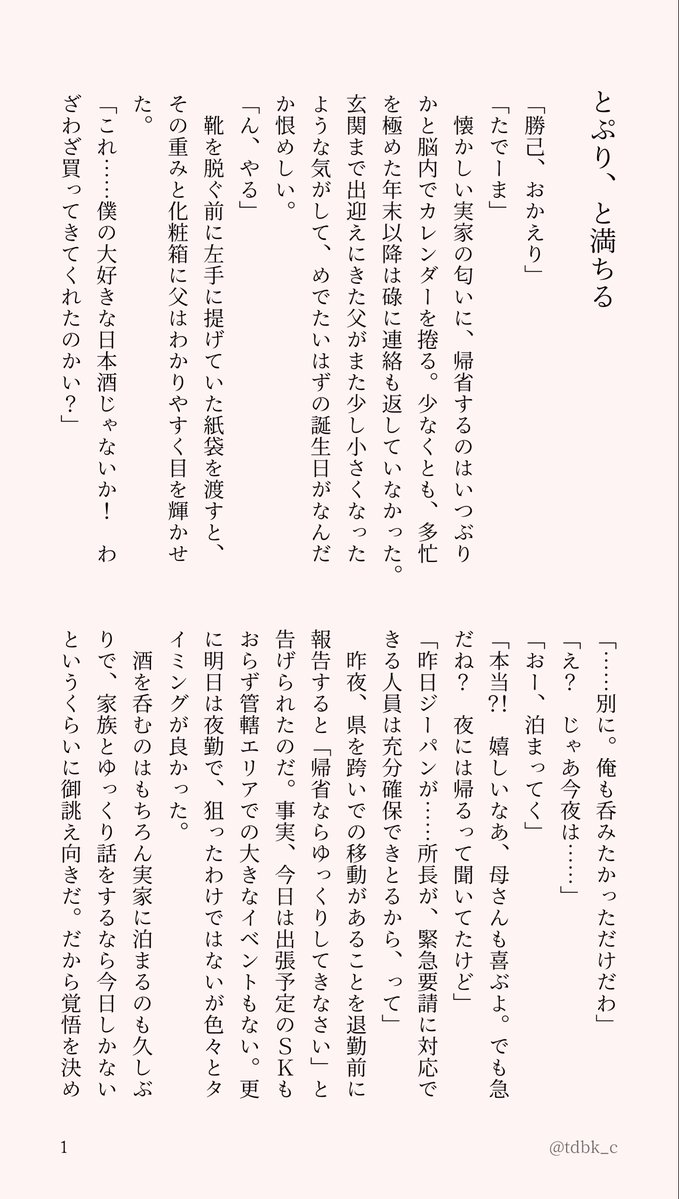 とぷり、と満ちる
「勝己、おかえり」
「たでーま」
　懐かしい実家の匂いに、帰省するのはいつぶり
かと脳内でカレンダーを捲る。少なくとも、多忙
を極めた年末以降は碌に連絡も返していなかった。
玄関まで出迎えにきた父がまた少し小さくなった
ような気がして、めでたいはずの誕生日がなんだ
か恨めしい。
「ん、やる」
　靴を脱ぐ前に左手に提げていた紙袋を渡すと、
その重みと化粧箱に父はわかりやすく目を輝かせ
た。
「これ……僕の大好きな日本酒じゃないか！　わ
ざわざ買ってきてくれたのかい？」
「……別に。俺も呑みたかっただけだわ」
「え？　じゃあ今夜は……」
「おー、泊まってく」
「本当?!　嬉しいなあ、母さんも喜ぶよ。でも急
だね？　夜には帰るって聞いてたけど」
「昨日ジーパンが……所長が、緊急要請に対応で
きる人員は充分確保できとるから、って」
　昨夜、県を跨いでの移動があることを退勤前に
報告すると「帰省ならゆっくりしてきなさい」と
告げられたのだ。事実、今日は出張予定のＳＫも
おらず管轄エリアでの大きなイベントもない。更
に明日は夜勤で、狙ったわけではないが色々とタ
イミングが良かった。
　酒を呑むのはもちろん実家に泊まるのも久しぶ
りで、家族とゆっくり話をするなら今日しかない
というくらいに御誂え向きだ。だから覚悟を決め
1
@tdbk_c